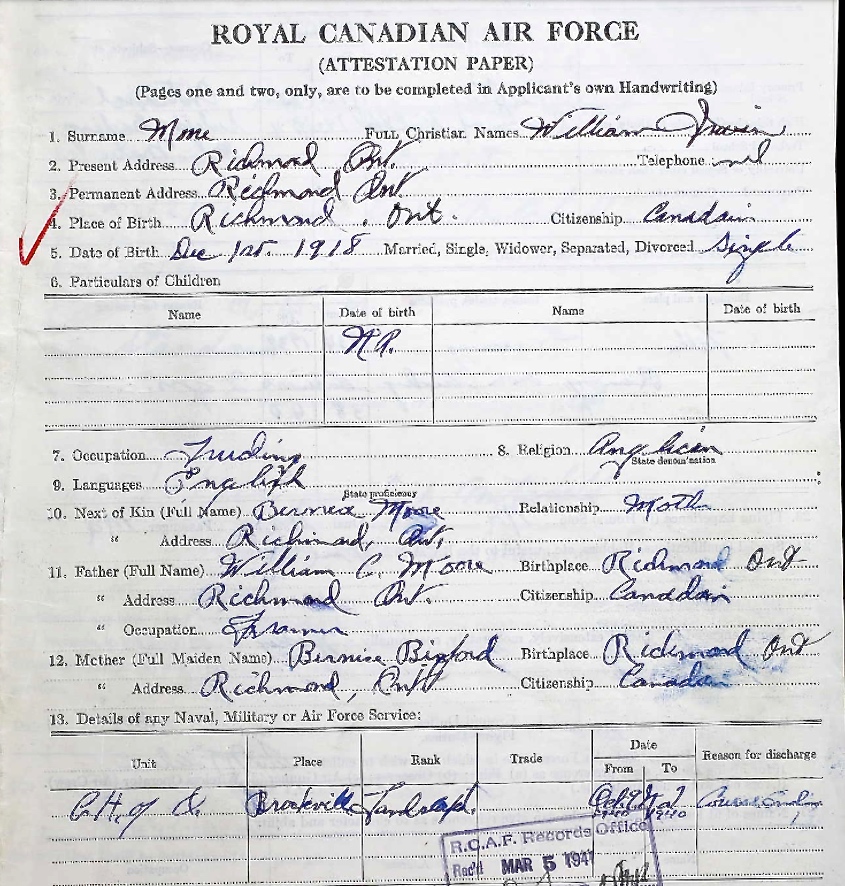 ROYAL CANADIAN AIR FORCE
(ATTESTATION PAPER)
(Pages one and two, only, are to be completed in Applicant's own Handwriting)
1. Surname Moore Full Christian Names William Irwin
2. Present Address Richmond Ont. Telephone nil
3. Permanent Address Richmond Ont
4. Place of Birth Richmond, Ont. Citizenship Canadain
5. Date of Birth Dec 1st. 1918 Married, Single, Widower, Separated, Divorced Single
6. Particulars of Children
Name Date of birth Name Date of birth
N.A.
7. Occupation 8. Religion Anglican
State denomination
9. Languages English
State proficiency
10. Next of Kin (Full Name) Bernice Moore Relationship Moth
" Address Richmond, Ont.
11. Father (Full Name) William C. Moore Birthplace Richmond Ont
" Address Richmond Ont. Citizenship Canadain
" Occupation
12. Mother (Full Maiden Name) Bernice Birford Birthplace Richmond Ont
" Address Richmond, Ont Citizenship Canadain
13. Details of any Naval, Military or Air Force Service:
Unit Place Rank Trade Date Reason for discharge
From To
Brockville 1940 1940
R.C.A.F. Records Office
Rec'd MAR 5 1941